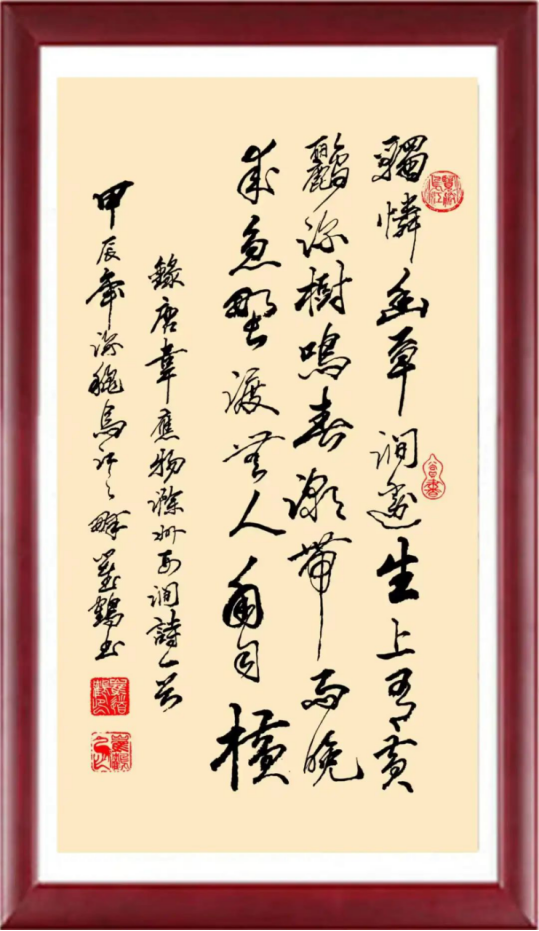 獨憐幽草澗邊生上有黃
鸝深樹鳴春潮帶雨晚
來急野渡無人舟自橫
錄唐韋應物滁州西澗詩一首
甲辰年深穐烏江之畔鶴書